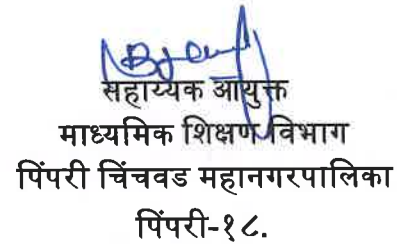 सहाय्यक आयुक्त
माध्यमिक शिक्षण विभाग
पिंपरी चिंचवड महानगरपालिका
पिंपरी-१८.